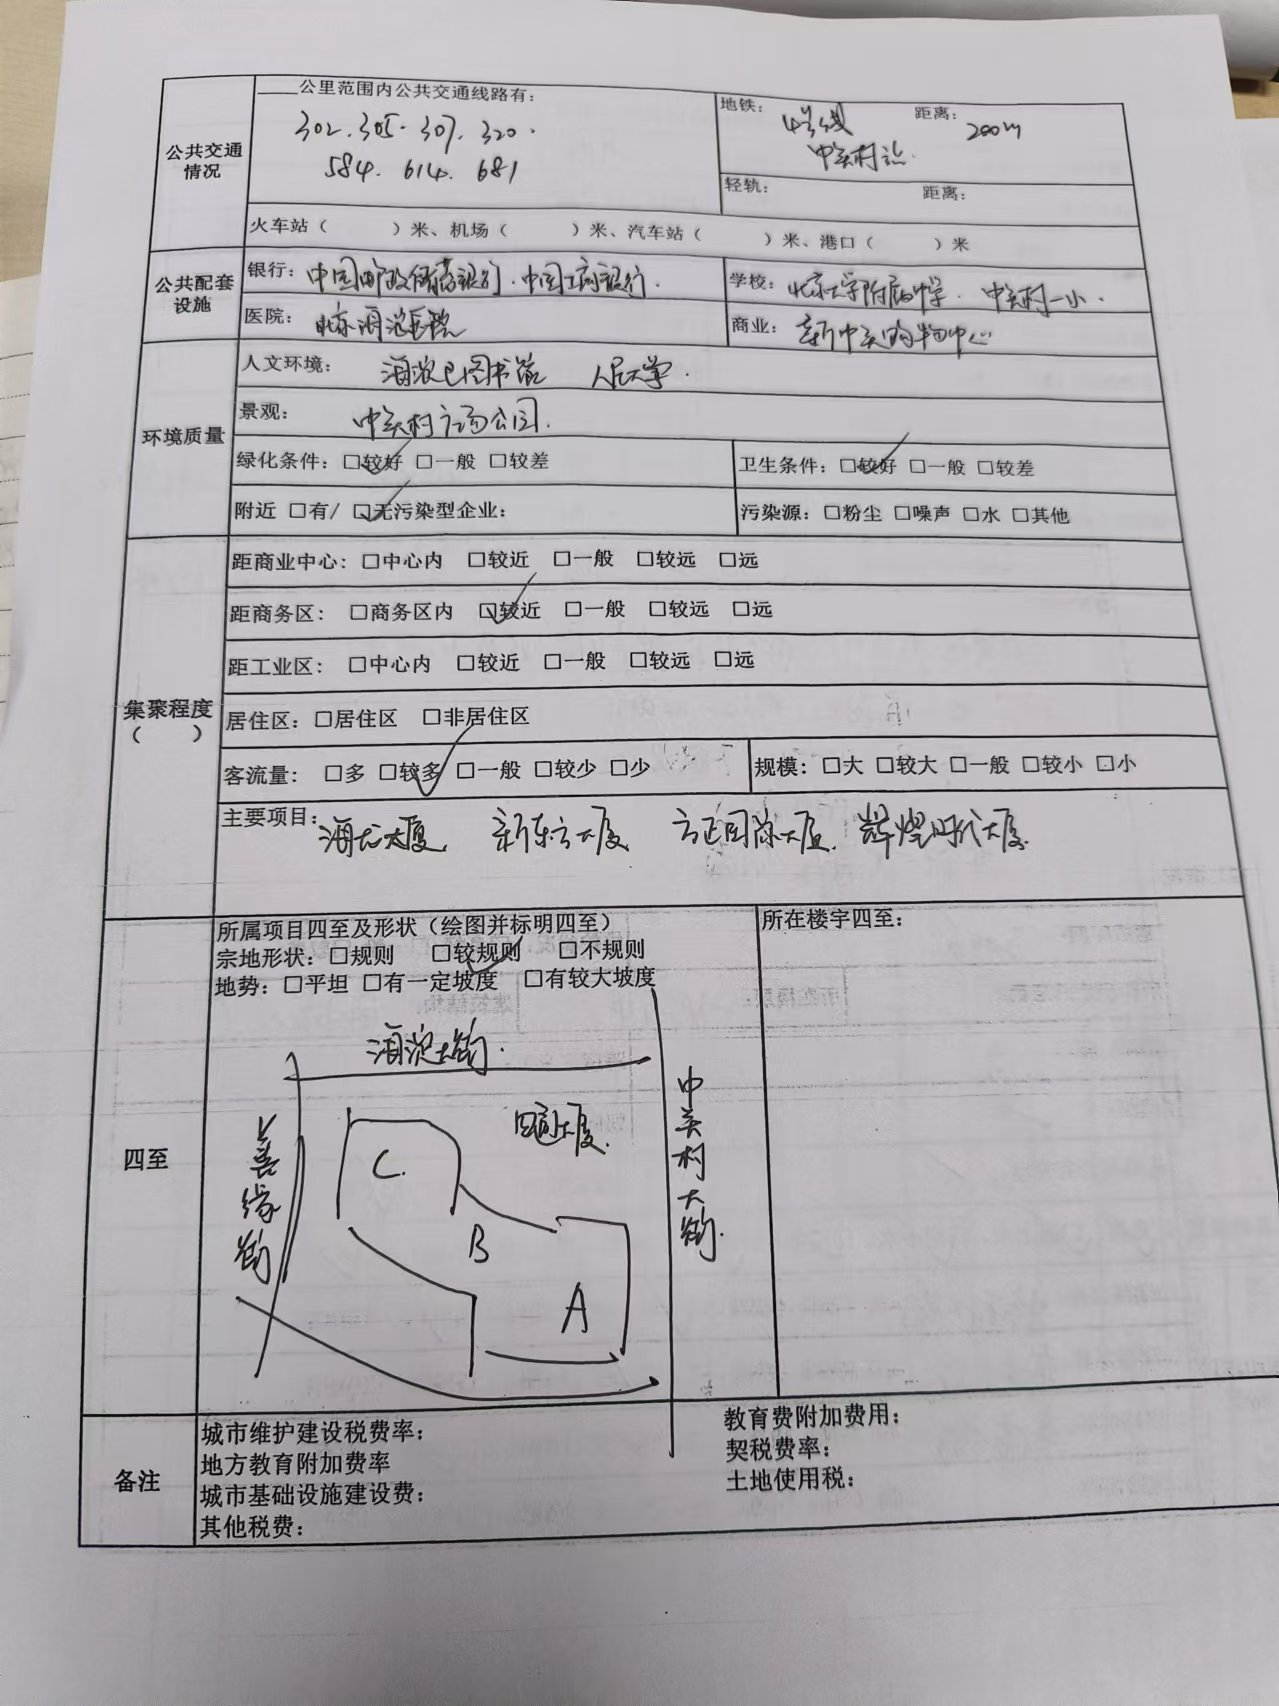 公共交通情况
____公里范围内公共交通线路有:
302. 305. 307. 320.
584. 614. 681
地铁: 4号线 距离: 200m
中关村站.
轻轨: 距离:
火车站( )米、机场( )米、汽车站( )米、港口( )米
公共配套设施
银行: 中国邮政储蓄银行. 中国工商银行.
学校: 北京大学附属中学. 中关村一小.
医院: 北京海淀医院
商业: 新中关购物中心
环境质量
人文环境: 海淀区图书馆 人民大学.
景观: 中关村广场公园.
绿化条件: ☑较好 □一般 □较差
卫生条件: ☑较好 □一般 □较差
附近 □有/ ☑无污染型企业:
污染源: □粉尘 □噪声 □水 □其他
集聚程度
( )
距商业中心: □中心内 □较近 □一般 □较远 □远
距商务区: □商务区内 ☑较近 □一般 □较远 □远
距工业区: □中心内 □较近 □一般 □较远 □远
居住区: □居住区 □非居住区
客流量: □多 ☑较多 □一般 □较少 □少
规模: □大 □较大 □一般 □较小 □小
主要项目: 海龙大厦 新东方大厦 方正国际大厦. 辉煌时代大厦.
四至
所属项目四至及形状(绘图并标明四至)
宗地形状: □规则 ☑较规则 □不规则
地势: □平坦 □有一定坡度 □有较大坡度
所在楼宇四至:
海淀大街.
善缘街
C.
B
A
大厦.
中关村大街.
备注
城市维护建设税费率:
地方教育附加费率
城市基础设施建设费:
其他税费:
教育费附加费用:
契税费率:
土地使用税: